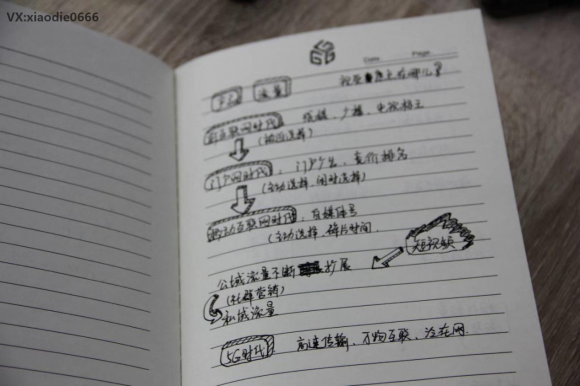 VX:xiaodie0666
Date Page
流量
前互联网时代，纸媒、广播、电视称王
（被动选择）
门户网时代，门户广告，竞价排名
（主动选择，闲时选择）
移动互联网时代，自媒体号
（主动选择，碎片时间.
短视频
公域流量不断扩展
（社群营销）
私域流量
5G时代 高速传输、万物互联、泛在网